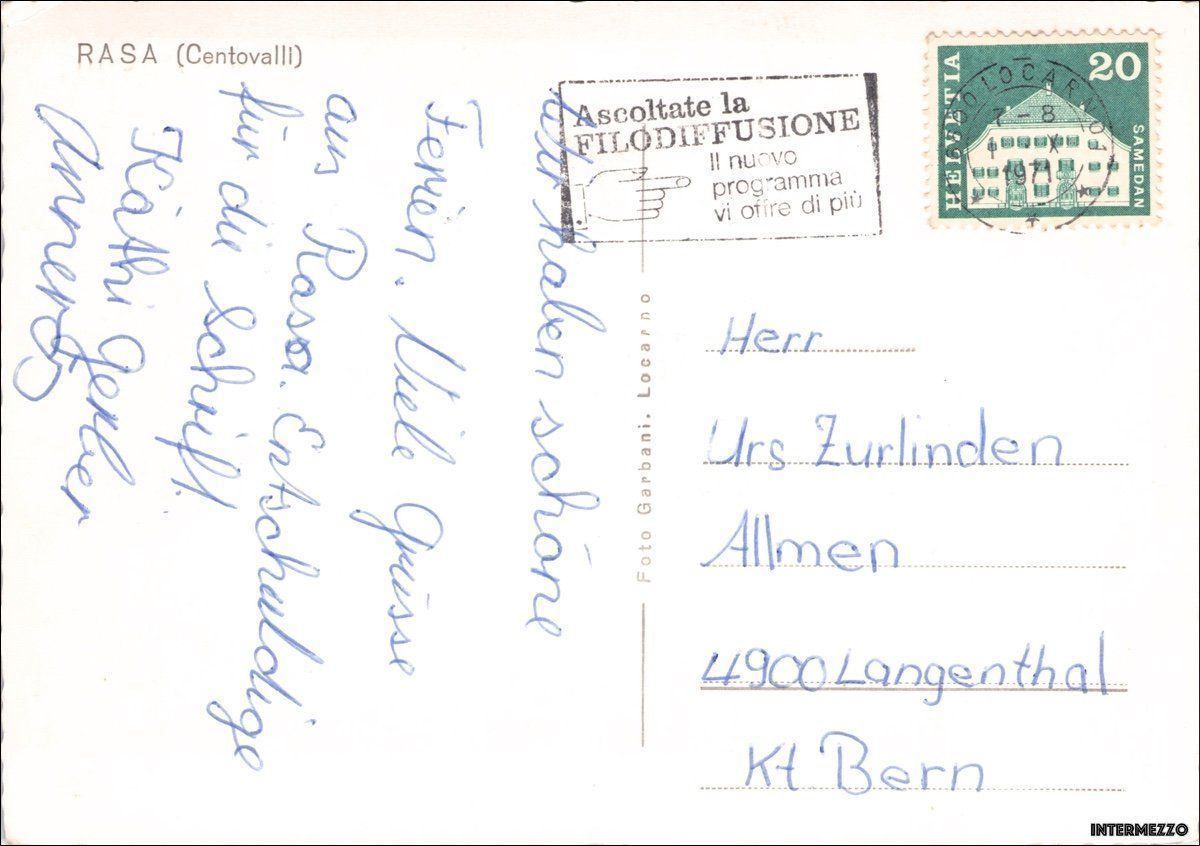 RASA (Centovalli)
Ascoltate la
FILODIFFUSIONE
Il nuovo
programma
vi offre di più
HELVETIA
20
SAMEDAN
LOCARNO 1
7-8
X
1971
wir haben schöne
Ferien. Viele Grüsse
aus Rasa. Entschuldige
für die Schrift.
Käthi Gerber
Annerös
Foto Garbani. Locarno
Herr
Urs Zurlinden
Allmen
4900 Langenthal
Kt Bern
INTERMEZZO